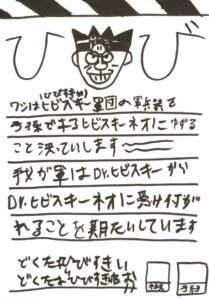 ひび
(ひびすきい)
ワシはヒビスキー軍団の兵器を
子孫であるヒビスキーネオにゆずる
こと決っています
我が軍はDr.ヒビスキーから
Dr.ヒビスキーネオに受け付が
れることを期たいしています
どくたれひびすきい
どくたーひびすき